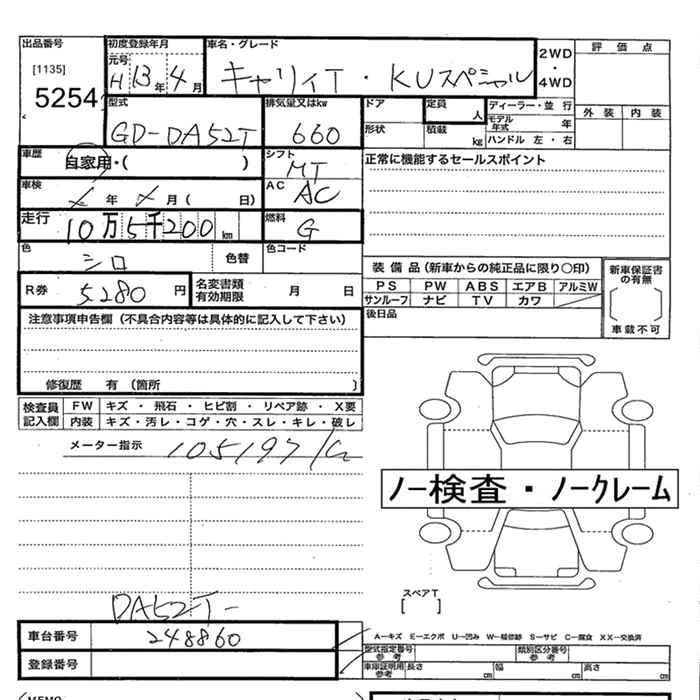 出品番号 初度登録年月 車名・グレード 2WD・4WD 評価点
[1135] 元号 H13年4月 キャリィT・KUスペシャル
5254 型式 排気量又はkw ドア 定員 人 ディーラー・並行 外装 内装
GD-DA52T 660 形状 積載 kg モデル年式 年
ハンドル 左・右
車歴 自家用・( ) シフト MT 正常に機能するセールスポイント
車検 年 月( 日) AC AC
走行 10万5千200km 燃料 G
色 シロ 色替 色コード
装備品(新車からの純正品に限り○印) 新車保証書の有無
PS PW ABS エアB アルミW
サンルーフ ナビ TV カワ
R券 5280円 名変書類有効期限 月 日 後日品 車載不可
注意事項申告欄(不具合内容等は具体的に記入して下さい)
修復歴 有〔箇所 〕
検査員記入欄 FW キズ・飛石・ヒビ割・リペア跡・X要
内装 キズ・汚レ・コゲ・穴・スレ・キレ・破レ
メーター指示 105197
ノー検査・ノークレーム
スペアT
[ ]
DA52T-
車台番号 248860
A-キズ E-エクボ U-凹み W-補修跡 S-サビ C-腐食 XX-交換済
登録番号
型式指定番号参考 類別区分番号参考
車庫証明用参考 長さ cm 幅 cm 高さ cm
MEMO